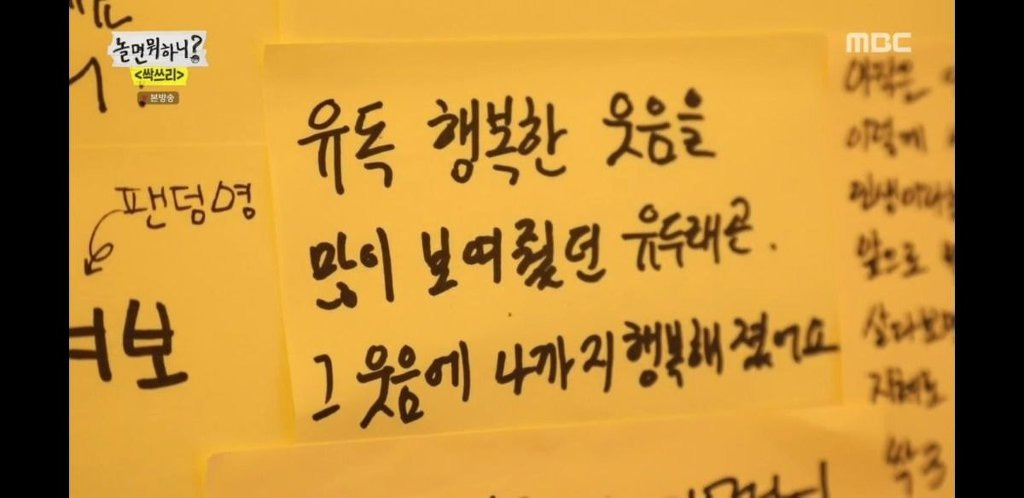 놀면뭐하니?
<싹쓰리>
본방송
MBC
팬덤명
여보
유독 행복한 웃음을
많이 보여줬던 유두래곤.
그 웃음에 나까지 행복해졌어요
아직은
이렇게
앞으로
살다보면